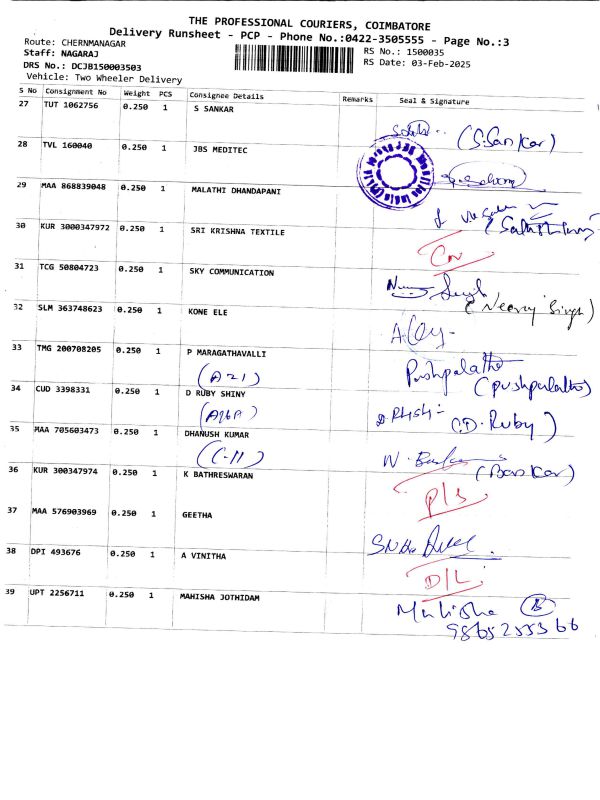 THE PROFESSIONAL COURIERS, COIMBATORE
Delivery Runsheet - PCP - Phone No.:0422-3505555 - Page No.:3
Route: CHERNMANAGAR
Staff: NAGARAJ
DRS No.: DCJB150003503
Vehicle: Two Wheeler Delivery
RS No.: 1500035
RS Date: 03-Feb-2025
S No Consignment No Weight PCS Consignee Details Remarks Seal & Signature
27 TUT 1062756 0.250 1 S SANKAR
(S.Sankar)
28 TVL 160040 0.250 1 JBS MEDITEC
29 MAA 868839048 0.250 1 MALATHI DHANDAPANI
30 KUR 3000347972 0.250 1 SRI KRISHNA TEXTILE
31 TCG 50804723 0.250 1 SKY COMMUNICATION
(Neeraj Singh)
32 SLM 363748623 0.250 1 KONE ELE
33 TMG 200708205 0.250 1 P MARAGATHAVALLI
(A21) Pushpalatha (pushpalatha)
34 CUD 3398331 0.250 1 D RUBY SHINY
(D.Ruby)
35 MAA 705603473 0.250 1 DHANUSH KUMAR
(C-11) (Baskar)
36 KUR 300347974 0.250 1 K BATHRESWARAN
P/S
37 MAA 576903969 0.250 1 GEETHA
38 DPI 493676 0.250 1 A VINITHA
D/L
39 UPT 2256711 0.250 1 MAHISHA JOTHIDAM
Mahisha